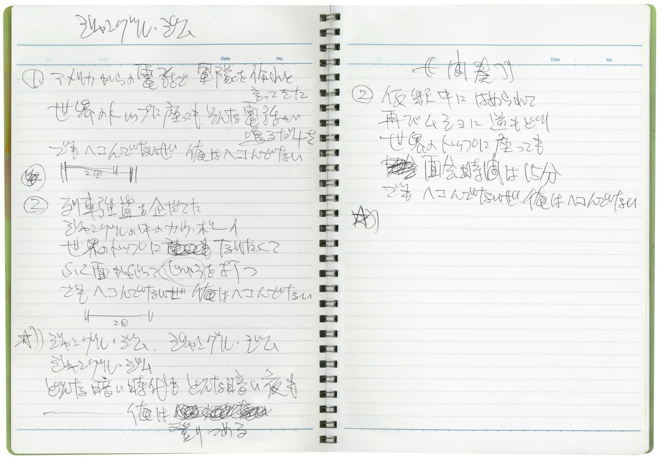 ジャングル・ジム
① アメリカからの電話で 軍隊を作れと
言ってきた
世界のトップに座っても そんな電話が
鳴るだけさ
でもヘコんでないぜ 俺はヘコんでない
2回
② 列車強盗を企てた
ジャングルの中のカウ・ボーイ
世界のトップに なれなくて
でもヘコんでないぜ 俺はヘコんでない
2回
☆)) ジャングル・ジム. ジャングル・ジム
ジャングル・ジム
どんな暗い時代も どんな暗い夜も
俺は
登りつめる
Date No.
《間奏》
② 仮釈中に はめられて
再びムショに 逆もどり
世界のトップに座っても
面会時間は 15分
でもヘコんでないぜ 俺はヘコんでない
☆))